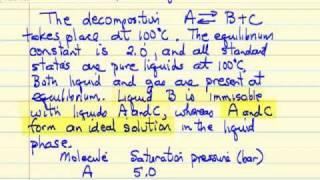 The decomposition A ⇌ B+C
takes place at 100°C. The equilibrium
constant is 2.0, and all standard
states are pure liquids at 100°C.
Both liquid and gas are present at
equilibrium. Liquid B is immisable
with liquids A and C, whereas A and C
form an ideal solution in the liquid
phase.
Molecule Saturation pressure (bar)
A 5.0